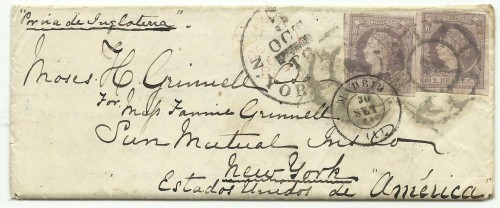 "Por via de Inglaterra"
Moses H. Grinnell
For Miss Fannie Grinnell
Sun Mutual Ins Co
New York
Estados Unidos de "América"
OCT
N. YORK
MADRID
30
SET
2 RS